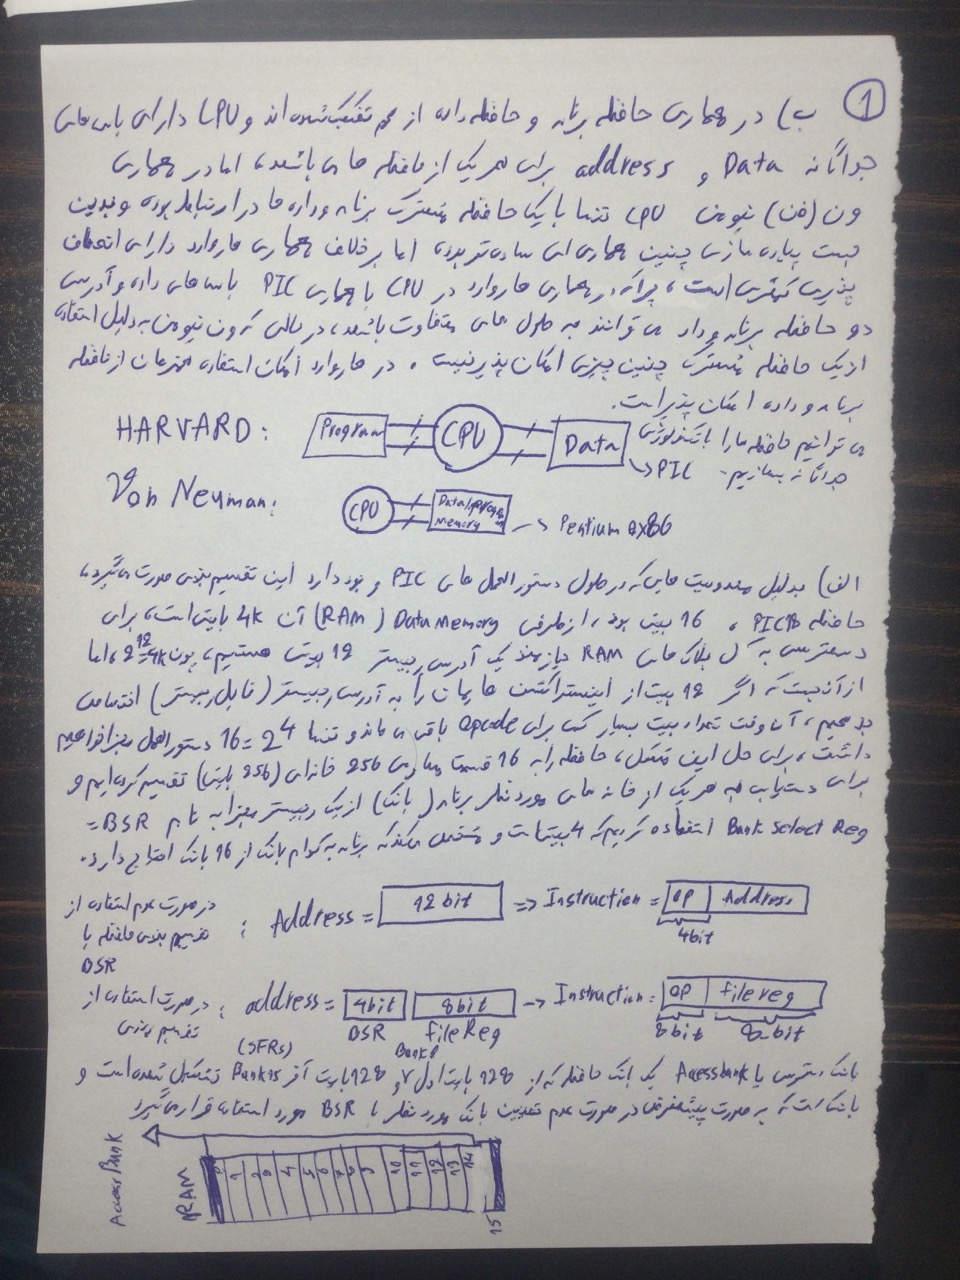 1
ب) در معماری حافظه برنامه و حافظه داده از هم تفکیک شده‌اند و CPU دارای باس های
جداگانه Data و address برای هر یک از حافظه ها می باشند، اما در معماری
ون (فن) نیومن CPU تنها با یک حافظه مشترک برنامه و داده ها در ارتباط بوده و بدین
جهت پیاده سازی چنین معماری ای ساده تر بوده اما بر خلاف معماری هاروارد دارای انعطاف
پذیری کمتری است، چراکه در معماری هاروارد در CPU با معماری PIC باس های داده و آدرس
دو حافظه برنامه و داده می توانند به طول های متفاوت باشند، در حالی که ون نیومن به دلیل استفاده
از یک حافظه مشترک چنین چیزی امکان پذیر نیست. در هاروارد امکان استفاده همزمان از حافظه
برنامه و داده امکان پذیر است.
می توانیم حافظه ها را با تکنولوژی
جداگانه بسازیم.
HARVARD: Program CPU Data → PIC
Von Neuman: CPU Data/program memory → Pentium 8x86
الف) بدلیل محدودیت هایی که در طول دستورالعمل های PIC وجود دارد این تقسیم بندی صورت می گیرد،
حافظه PIC18، 16 بیتی بوده، از طرفی Data Memory (RAM) آن 4k بایتی است، برای
دسترسی به کل بلاک های RAM نیازمند یک آدرس رجیستر 12 بیتی هستیم، چون 2^12=4k، اما
از آن جهت که اگر 12 بیت از اینستراکشن هایمان را به آدرس رجیستر (فایل رجیستر) اختصاص
بدهیم، آن وقت تعداد بیت بسیار کمی برای opcode باقی می ماند و تنها 16=2^4 دستورالعمل خواهیم
داشت، برای حل این مشکل، حافظه را به 16 قسمت مساوی 256 خانه‌ای (256 بایتی) تقسیم کرده‌ایم و
برای دستیابی به هر یک از خانه های مورد نظر برنامه (بانک) از یک رجیستر مجزا به نام BSR =
Bank Select Reg استفاده کردیم که 4 بیت است و مشخص می‌کند که برنامه به کدام بانک از 16 بانک احتیاج دارد.
در صورت عدم استفاده از
تقسیم بندی حافظه با
BSR
: Address = 12bit => Instruction = op Address
4bit
در صورت استفاده از
تقسیم بندی
: address = 4bit 8bit → Instruction: op filereg
BSR fileReg 8bit 8-bit
(SFRs) Bank0
بانک دسترسی یا Acessbank یک بانک حافظه که از 128 بایت اول و 128 بایت آخر Bank15 تشکیل شده است و
بانکی است که به صورت پیشفرض در صورت عدم تعیین بانک مورد نظر با BSR مورد استفاده قرار می گیرد
Access Bank
RAM
0 1 2 3 4 5 6 7 8 9 10 11 12 13 14
15